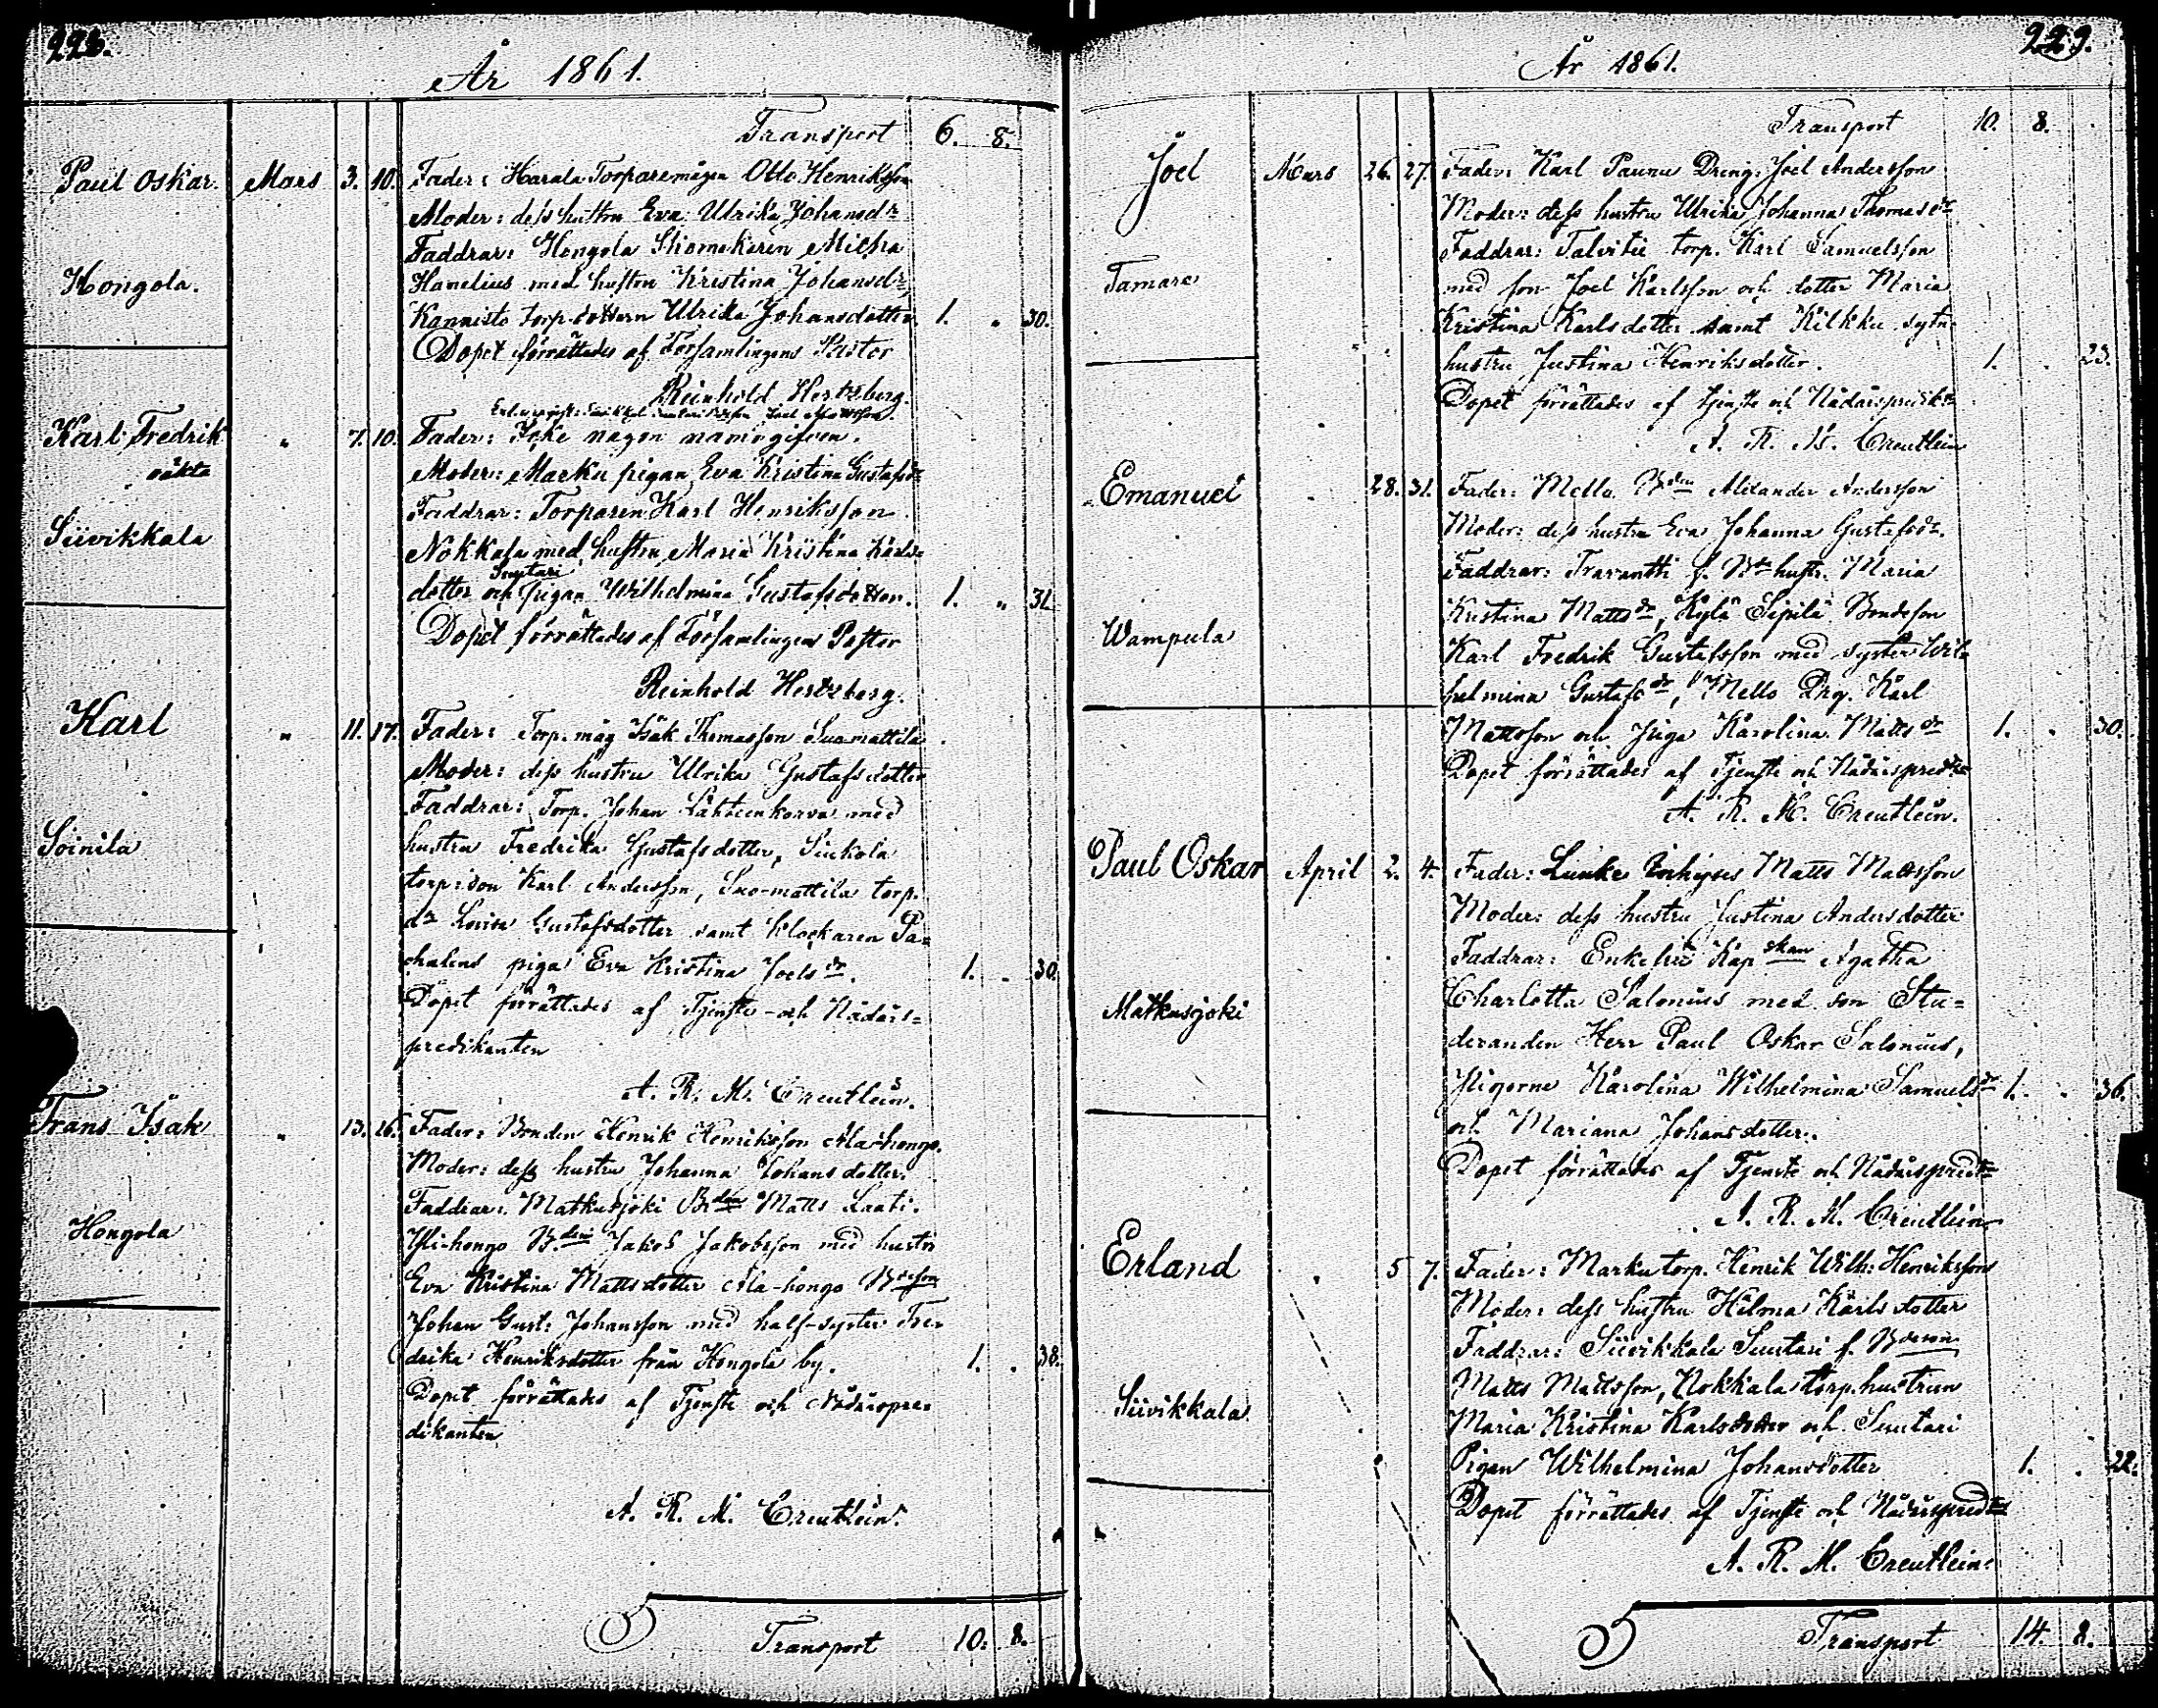 228.
År 1861.
Transport 6. 8.
Paul Oskar. Mars 3. 10. Fader: Harala Torparemågen Otto Henriksson
Moder: dess hustru Eva Ulrika Johansdr
Faddrar: Hongola Skomakaren Micha
Hongola.
Hanelius med hustru Kristina Johansdr,
Kannisto torp. dottern Ulrika Johansdotter. 1. " 30.
Dopet förrättades af Församlingens Pastor
Reinhold Hertzberg.
Joel Mattsson.
Karl Fredrik " 7. 10. Fader: Icke någon namngifven.
oäkta
Moder: Marku pigan Eva Kristina Gustafsdr
Faddrar: Torparen Karl Henriksson
Siivikkala
Nokkala med hustru Maria Kristina Karls-
Suutari
dotter och pigan Wilhelmina Gustafsdotter. 1. " 31.
Dopet förrättades af Församlingens Pastor
Reinhold Hertzberg.
Karl " 11. 17. Fader: Torp. måg Isak Thomasson Suomattila
Moder: dess hustru Ulrika Gustafsdotter
Faddrar: Torp. Johan Lähteenkorva med
Soinila
hustru Fredrika Gustafsdotter, Sinkola
torp: son Karl Andersson, Suo-mattila torp.
dr Lovisa Gustafsdotter samt klockaren Pa-
chalens piga Eva Kristina Joelsdr. 1. " 30.
Dopet förrättades af Tjenste- och Nådårs-
predikanten
A. R. M. Creutlein.
Frans Isak " 13. 16. Fader: Bonden Henrik Henriksson Ala-hongo.
Moder: dess hustru Johanna Johansdotter.
Faddrar: Matkusjoki Bden Matts Laati.
Hongola
Yli-hongo Bden Jakob Jakobsson med hustru
Eva Kristina Mattsdotter Ala-hongo Bdeson
Johan Gust: Johansson med half-syster Fre-
drika Henriksdotter från Hongola by. 1. . 38.
Dopet förrättades af Tjenste och Nådårspre-
dikanten
A. R. M. Creutlein.
Transport 10. 8.
229.
År 1861.
Transport 10. 8.
Joel Mars 26. 27. Fader: Karl Paunu Dräng: Joel Andersson
Moder: dess hustru Ulrika Johanna Thomasdr
Faddrar: Talvitie torp. Karl Samuelsson
Tamare
med son Joel Karlsson och dotter Maria
Kristina Karlsdotter samt Kilkku sytn.
hustru Justina Henriksdotter. 1. . 23.
Dopet förrättades af tjenste och Nådårspredikn
A. R. M. Creutlein
Emanuel " 28. 31. Fader: Mello Bden Alexander Andersson
Moder: dess hustru Eva Johanna Gustafsdr.
Faddrar: Travantti f. Bde hustr. Maria
Wampula
Kristina Mattsdr, Kylä Sepilä Bondeson
Karl Fredrik Gustafsson med syster Wil-
helmina Gustafsdr, Mello Drg. Karl
Mattsson och Piga Karolina Mattsdr 1. . 30.
Dopet förrättades af Tjenste och Nådårspredkn
A. R. M. Creutlein.
Paul Oskar April 2. 4. Fader: Lunke Inhyses Matts Mattsson
Moder: dess hustru Justina Andersdotter
Faddrar: Enkefru Kapskan Agatha
Matkusjoki
Charlotta Salonius med son Stu-
deranden Herr Paul Oskar Salonius,
Pigorne Karolina Wilhelmina Samuelsdr 1. . 36.
och Mariana Johansdotter.
Dopet förrättades af Tjenste och Nådårspredkn
A. R. M. Creutlein
Erland " 5 7. Fader: Marku torp. Henrik Wilh: Henriksson
Moder: dess hustru Hilma Karlsdotter
Faddrar: Siivikkala Suutari f. Bdeson
Siivikkala.
Matts Mattsson, Nokkala torp. hustrun
Maria Kristina Karlsdotter och Suutari
Pigan Wilhelmina Johansdotter 1. . 22.
Dopet förrättades af Tjenste och Nådårspredkn
A. R. M. Creutlein.
Transport 14. 8.